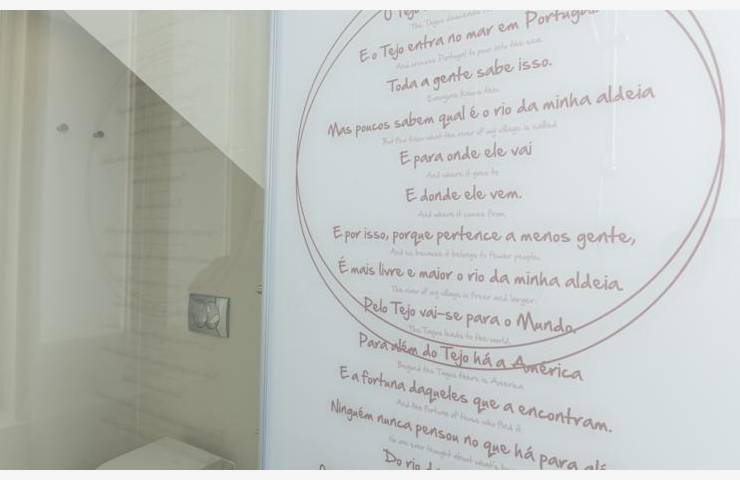 O Tejo
The Tagus descends
E o Tejo entra no mar em Portugal.
And crosses Portugal to pour into the sea.
Toda a gente sabe isso.
Everyone knows this.
Mas poucos sabem qual é o rio da minha aldeia
But few know what the river of my village is called
E para onde ele vai
And where it goes to
E donde ele vem.
And where it comes from.
E por isso, porque pertence a menos gente,
And so because it belongs to fewer people,
É mais livre e maior o rio da minha aldeia.
The river of my village is freer and larger.
Pelo Tejo vai-se para o Mundo.
The Tagus leads to the world.
Para além do Tejo há a América
Beyond the Tagus there is America
E a fortuna daqueles que a encontram.
And the fortune of those who find it
Ninguém nunca pensou no que há para alé
No one ever thought about what's
Do rio d